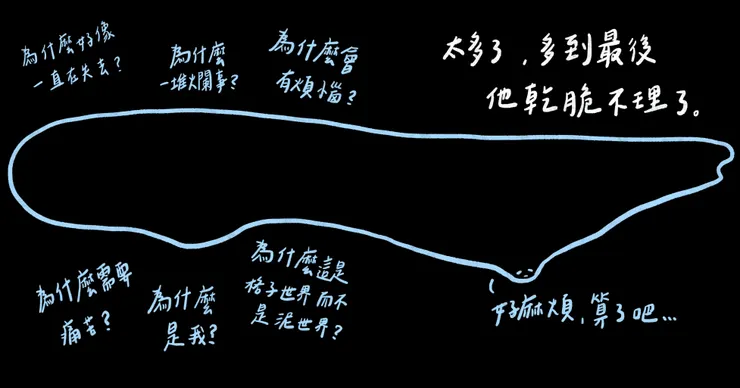 為什麼好像
一直在失去?
為什麼
一堆爛事?
為什麼會
有煩惱?
太多了，多到最後
他乾脆不理了。
為什麼需要
痛苦?
為什麼
是我?
為什麼這是
格子世界而不
是泥世界?
好麻煩，算了吧...